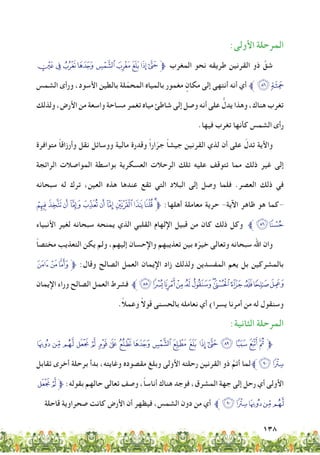 المرحلة الأولى:
شق ذو القرنين طريقه نحو المغرب ﴿ حَتَّىٰ إِذَا بَلَغَ مَغْرِبَ الشَّمْسِ وَجَدَهَا تَغْرُبُ فِي عَيْنٍ
حَمِئَةٍ ﴿٨٦﴾ ﴾ أي أنه أنتهى إلى مكانٍ مغمور بالمياه المحمّلة بالطين الأسود، ورأى الشمس
تغرب هناك، وهذا يدلُّ على أنه وصل إلى شاطئ مياه تغمر مساحة واسعة من الأرض، ولذلك
رأى الشمس كأنها تغرب فيها.
والآية تدلّ على أن لذي القرنين جيشاً جرّاراً وقدرة مالية ووسائل نقل وأرزاقاً متوافرة
إلى غير ذلك مما تتوقف عليه تلك الرحلات العسكرية بواسطة المواصلات الرائجة
في ذلك العصر. فلما وصل إلى البلاد التي تقع عندها هذه العين، ترك له سبحانه
-كما هو ظاهر الآية- حرية معاملة أهلها: ﴿ قُلْنَا يَا ذَا الْقَرْنَيْنِ إِمَّا أَن تُعَذِّبَ وَإِمَّا أَن تَتَّخِذَ فِيهِمْ
حُسْنًا ﴿٨٦﴾ ﴾ وكل ذلك كان من قبيل الإلهام القلبي الذي يمنحه سبحانه لغير الأنبياء
وان الله سبحانه وتعالى خيّره بين تعذيبهم والإحسان إليهم، ولم يكن التعذيب مختصاً
بالمشركين بل يعم المفسدين ولذلك زاد الإيمان العمل الصالح وقال: ﴿ وَأَمَّا مَنْ ءَامَنَ
وَعَمِلَ صَالِحًا فَلَهُ جَزَاءً الْحُسْنَىٰ وَسَنَقُولُ لَهُ مِنْ أَمْرِنَا يُسْرًا ﴿٨٨﴾ ﴾ فشرط العمل الصالح وراء الإيمان
وسنقول له من أمرنا يسرا﴾ أي نعامله بالحسنى قولاً وعملاً.
المرحلة الثانية:
﴿ ثُمَّ أَتْبَعَ سَبَبًا ﴿٨٩﴾ حَتَّىٰ إِذَا بَلَغَ مَطْلِعَ الشَّمْسِ وَجَدَهَا تَطْلُعُ عَلَىٰ قَوْمٍ لَّمْ نَجْعَل لَّهُم مِّن دُونِهَا
سِتْرًا ﴿٩٠﴾ ﴾لما أتمّ ذو القرنين رحلته الأولى وبلغ مقصوده وغايته، بدأ برحلة أخرى تقابل
الأولى أي رحل إلى جهة المشرق، فوجد هناك أناساً، وصف تعالى حالهم بقوله: ﴿ لَّمْ نَجْعَل
لَّهُم مِّن دُونِهَا سِتْرًا ﴿٩٠﴾ ﴾ أي من دون الشمس، فيظهر أن الأرض كانت صحراوية قاحلة
١٣٨